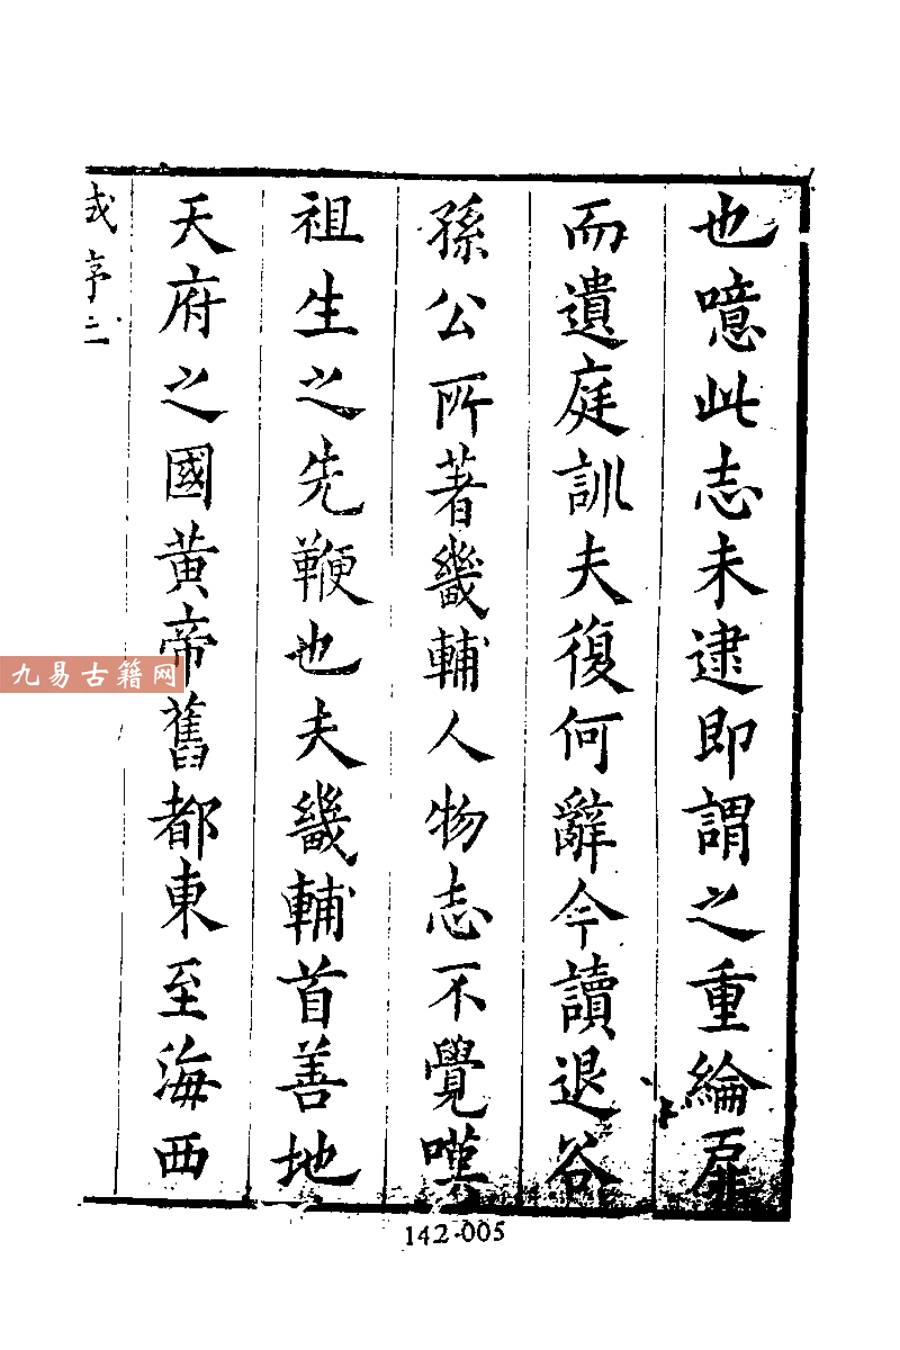 也噫此志未逮即謂之重綸扉
而遺庭訓夫復何辭今讀退谷
孫公所著畿輔人物志不覺嘆
祖生之先鞭也夫畿輔首善地
天府之國黃帝舊都東至海西
序二
九易古籍网
142-005